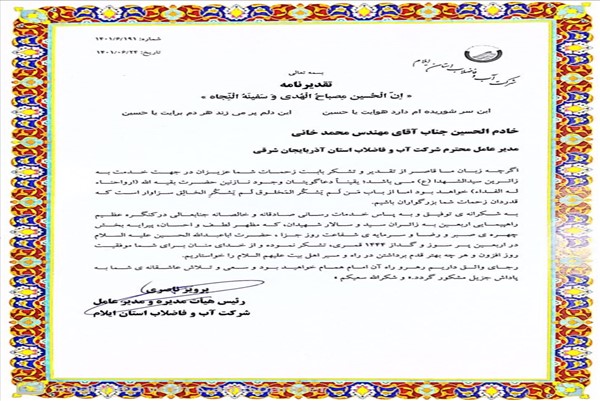 شماره: ۱۴۰۱/۶/۱۹۱
تاریخ: ۱۴۰۱/۰۶/۲۳
شرکت آب و فاضلاب استان ایلام
بسمه تعالی
تقدیرنامه
« اِنّ الحُسین مِصباحُ الهُدی وَ سَفینَهُ النِّجاه »
این سر شوریده ام دارد هوایت یا حسین این دلم پر می زند هر دم برایت یا حسین
خادم الحسین جناب آقای مهندس محمد خانی
مدیر عامل محترم شرکت آب و فاضلاب استان آذربایجان شرقی
اگرچه زبان ما قاصر از تقدیر و تشکر بابت زحمات شما عزیزان در جهت خدمت به
زائرین سیدالشهدا (ع) می باشد؛ یقیناً دعاگویتان وجود نازنین حضرت بقیه الله (ارواحناء
له الفداء) خواهد بود اما از باب مَن لَم یَشکُر المَخلوق لَم یَشکُرِ الخالِق سزاوار است که
قدردان زحمات شما بزرگواران باشیم.
به شکرانه ی توفیق و به پاس خدمات رسانی صادقانه و خالصانه جنابعالی درکنگره عظیم
راهپیمایی اربعین به زائران سید و سالار شهیدان، که مظهر لطف و احسان، پیرایه بخش
چهره ی سبر و رضا و سرمایه ی شفاعت روز جزا، حضرت اباعبدالله الحسین علیه السلام
در اربعین پر سوز و گداز ۱۴۴۴ قمری، تشکر نموده و از خدای منان برای شما موفقیت
روز افزون و هر چه بهتر قدم برداشتن در راه و سیر اهل بیت علیهم السلام را خواستاریم.
رجای واثق داریم رهرو راه آن امام همام خواهید بود و سعی و تلاش عاشقانه ی شما به
پاداش جزیل مشکور گردد. و شکرالله سعیکم .
پرویز ناصری
رئیس هیات مدیره و مدیر عامل
شرکت آب و فاضلاب استان ایلام